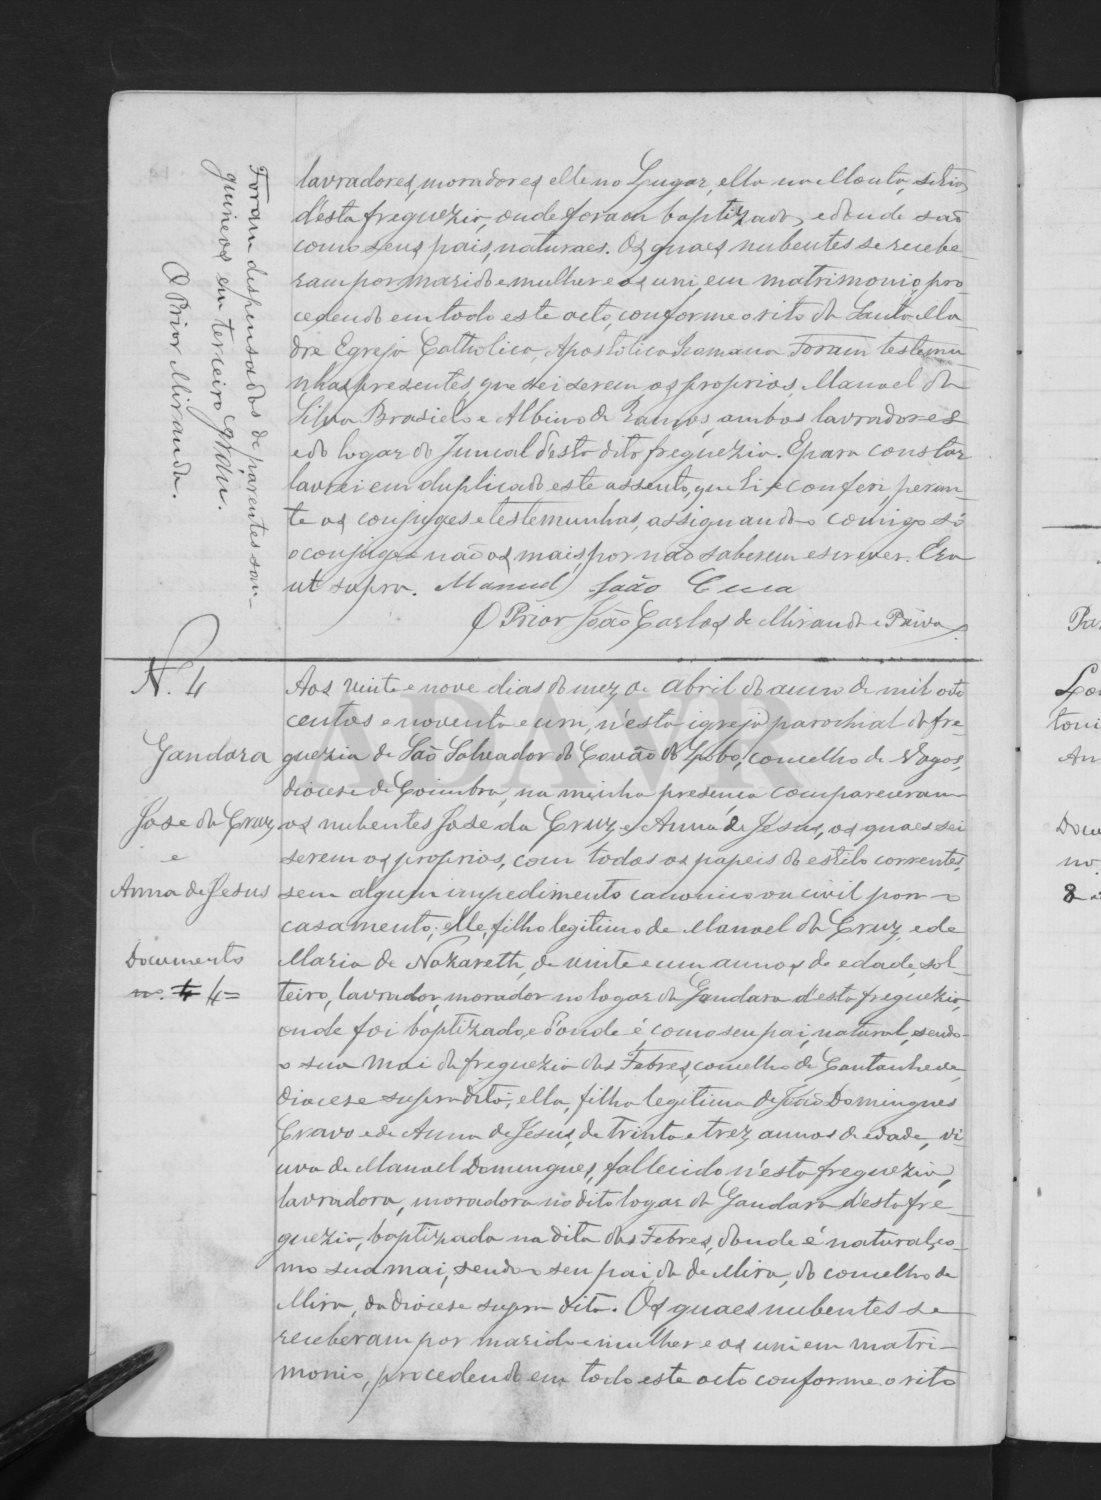 Foram dispensados de parentes san-
guineos em terceiro grau.
O Prior Miranda.
lavradores, moradores elle no Lugar, ella na Mouta, sitios
d'esta freguezia, onde foram baptizados, e donde são
como seus pais, naturaes. Os quaes nubentes se recebe-
ram por marido e mulher e os uni em matrimonio, pro-
cedendo em todo este acto, conforme o rito da Santa Ma-
dre Egreja Catholica, Apostolica Romana. Foram testemu-
nhas presentes, que sei serem os proprios, Manoel da
Silva e Albino de Ramos, ambos lavradores
e do logar do Juncal d'esta dita freguezia. E para constar
lavrei em duplicado este assento, que li e conferi, peran-
te os conjuges e testemunhas, assignando comigo só
o conjuge e não os mais, por não saberem escrever. Era
ut supra. Manuel João Cuca
O Prior João Carlos de Miranda e Paiva.
N. 4
Gandara
Jose da Cruz
e
Anna de Jesus
Documento
no. 4 4=
Aos vinte e nove dias do mez de Abril do anno de mil oito
centos e noventa e um, n'esta igreja parochial da fre-
guezia de São Salvador do Covão do Lobo, concelho de Vagos,
diocese de Coimbra, na minha presença compareceram
os nubentes Jose da Cruz, e Anna de Jesus, os quaes sei
serem os proprios, com todos os papeis do estilo correntes,
sem algum impedimento canonico ou civil para o
casamento; elle, filho legitimo de Manoel da Cruz, e de
Maria de Nazareth, de vinte e um annos de edade, sol-
teiro, lavrador, morador no logar da Gandara d'esta freguezia,
onde foi baptizado, e d'onde é, como seu pai, natural, sendo
o sua mai da freguezia das Febres, concelho de Cantanhede,
diocese supra dita; ella, filha legitima de João Domingues
Cravo e de Anna de Jesus, de trinta e trez annos de edade, vi-
uva de Manoel Domingues, fallecido n'esta freguezia,
lavradora, moradora no dito logar da Gandara d'esta fre-
guezia, baptizada na dita das Febres, donde é natural, co-
mo sua mai, sendo o seu pai da de Mira, do concelho de
Mira, da diocese supra dita. Os quaes nubentes se
receberam por marido e mulher e os uni em matri-
monio, procedendo em todo este acto conforme o rito